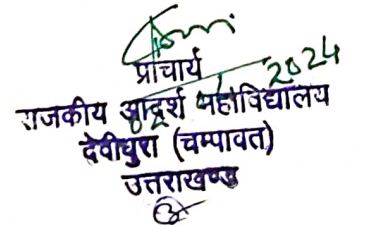 प्राचार्य
2024
राजकीय आदर्श महाविद्यालय
देवीधुरा (चम्पावत)
उत्तराखण्ड